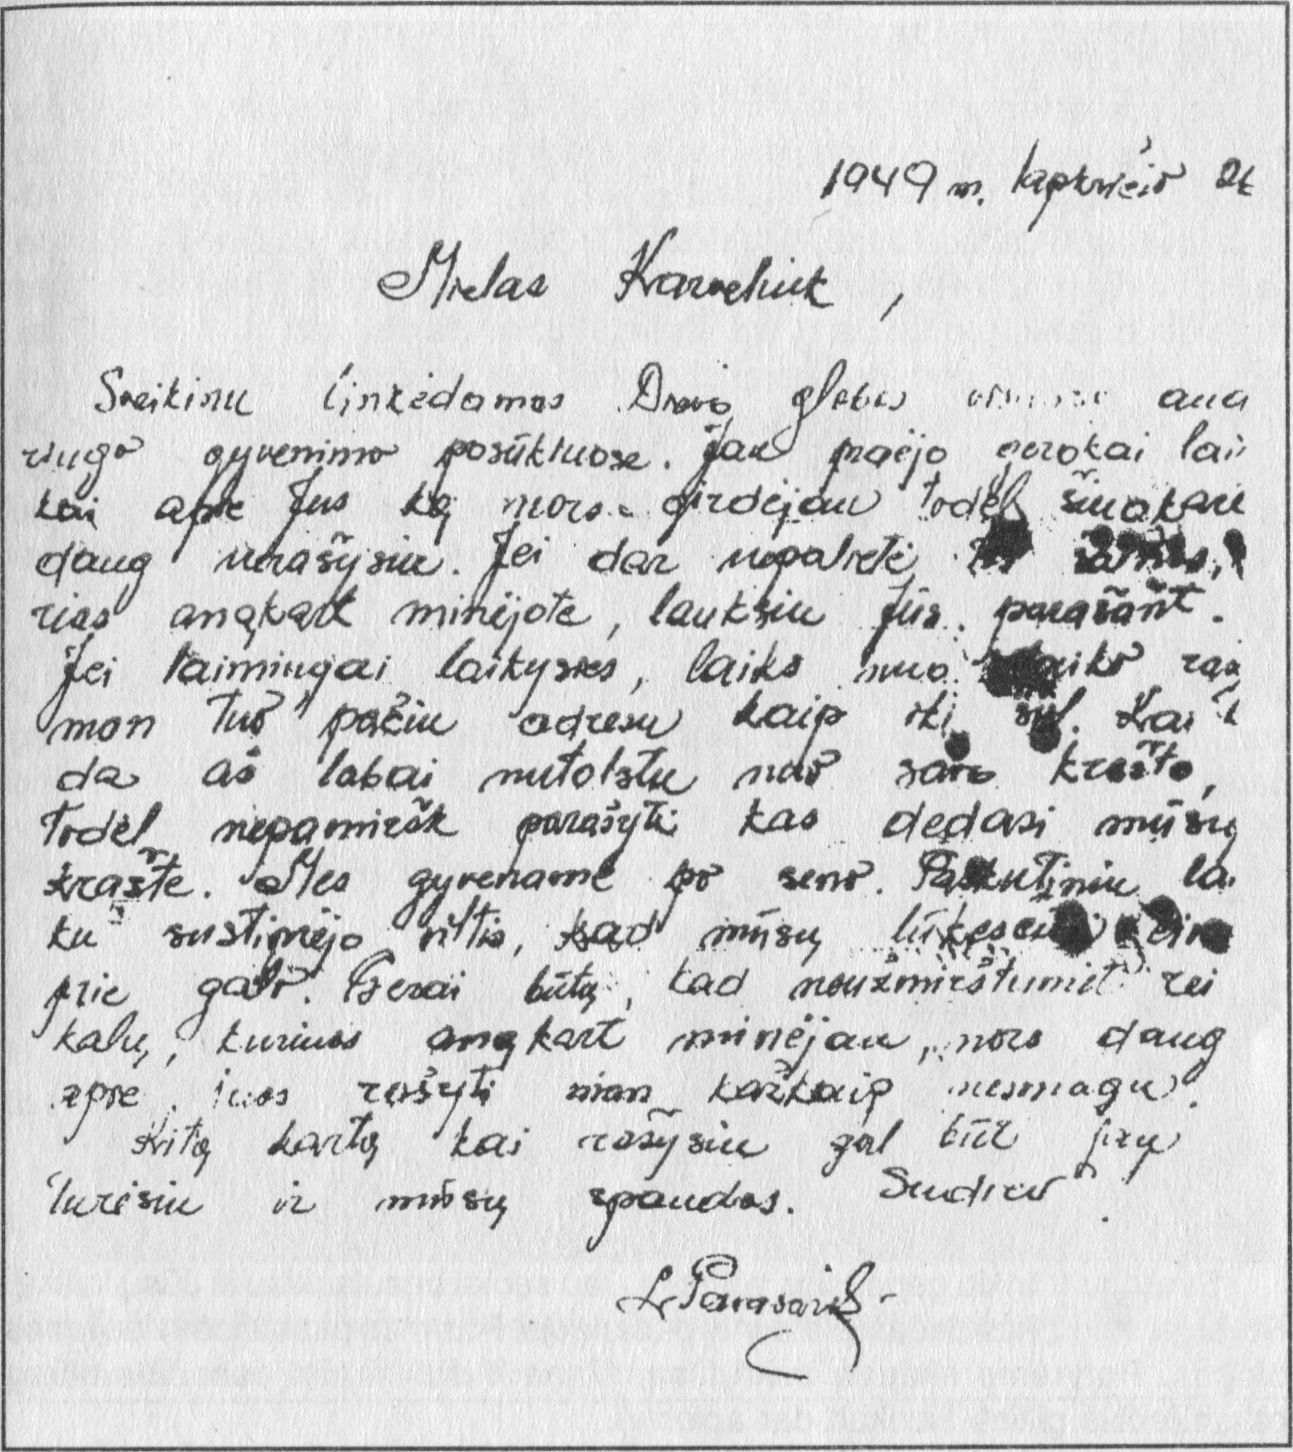 1949 m. lapkričio
Mielas Karveliuk,
Sveikinu linkėdamas Dievo globos
gyvenimo posūkiuose. Jau praėjo gerokai lai
kai apie Jus ką nors girdėjau todėl šiuokart
daug nerašysiu. Jei dar nepalietė
rias anąkart minėjote, lauksiu Jūs parašant.
Jei laimingai laikysies, laiks nuo laiko
man tuo pačiu adresu kaip iki šiol. Kai
da aš labai nutolstu nuo savo krašto,
todėl nepamiršk parašyti kas dedasi mūsų
krašte. Mes gyvename po seno. Paskutiniu lai
ku sustiprėjo viltis, kad mūsų lūkesčiai eina
prie galo. Gerai būtų, kad neužmirštumėt rei
kalų, kuriuos anąkart minėjau, nors daug
apie juos rašyti man kažkaip nesmagu.
Kitą kartą kai rašysiu gal būt jau
turėsiu ir mūsų spaudos. Sudiev.